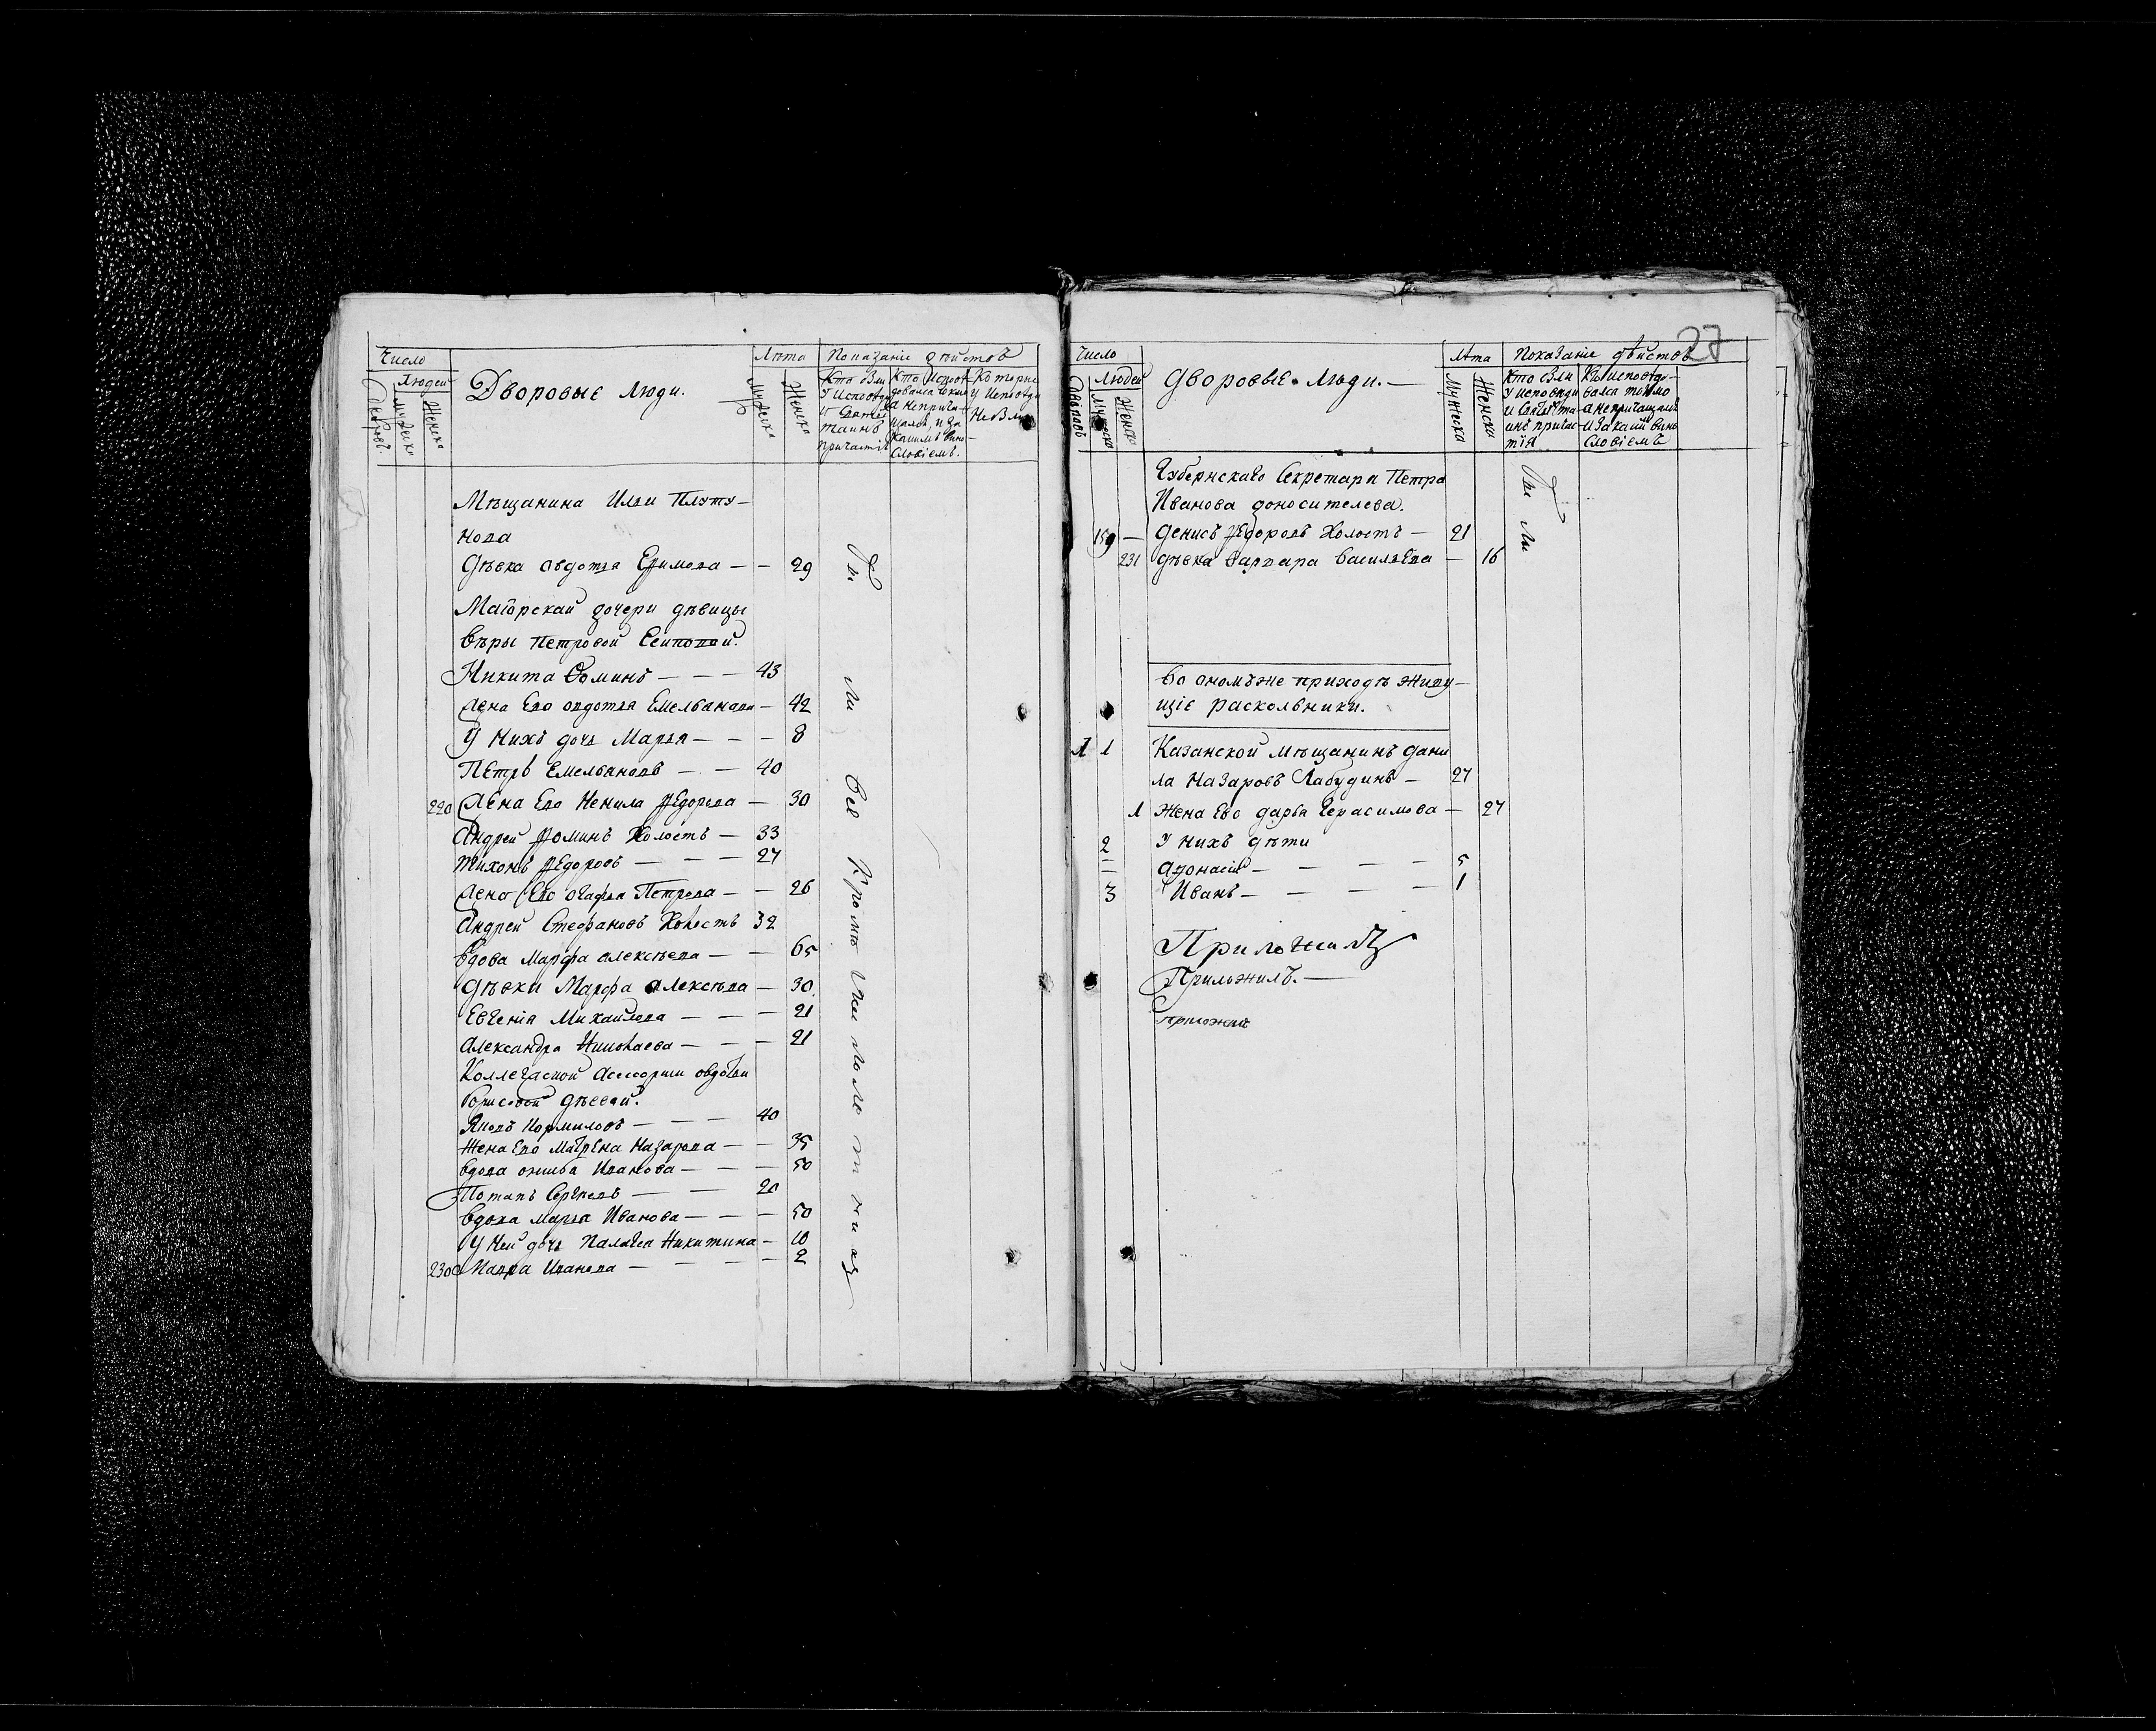 Число
Людей
Дворовъ
Мужеска
Женска
Дворовые люди.
Лѣта
Мужеска
Женска
Показаніе действъ
Кто были
у исповѣди
и Святыхъ
таинъ
причастія
Кто исповѣ-
девался токмо
а неприча-
щался, и за
какимъ вино-
словіемъ.
Которые
у исповѣди
не были
Мѣщанина Ильи Плоту-
нова
Дѣвка авдотья Ефимова — — 29
Маіорской дочери дѣвицы
Вѣры Петровой Есиповой.
Никита Фоминъ — — — 43
Жена Его авдотья Емельянова — 42
У нихъ дочь Марья — — — 8
Петръ Емельяновъ — — 40
220 Жена Его Ненила Ѳедорова — 30
Андрей Ѳоминъ Холостъ — 33
Тихонъ Ѳедоровъ — — — 27
Жена Его агафья Петрова — — 26
Андрей Стефановъ Холостъ 32
Вдова Марфа алексѣева — — 65
Дѣвки Марфа алексѣева — 30.
Евгенія Михайлова — — — 21
Александра Николаева — — — 21
Коллежской Асессорши авдотьи
Борисовой дѣевой.
Яковъ Кормиловъ — — — 40
Жена Его Матрена Назарова — — 35
Вдова Иванова — — — 50
Потапъ Сергѣевъ — — 20
Вдова марья Иванова — — — 50
У ней дочь Палагея Никитина — 10
230 Мавра Иванова — — — — 2
Бы ли Все Кромѣ малолетнихъ
27
Число
Людей
Дворовъ
Мужеска
Женска
Дворовые люди. —
Лѣта
Мужеска
Женска
Показаніе дѣйствъ
Кто были
у исповѣди
и Святыхъ та-
инъ причас-
тія
Кто исповѣде-
вался токмо
а непричащался
и закаким вино
словіемъ
Губернскаго Секретаря Петра
Иванова доносителева.
159 — Денисъ Ѳедоровъ Холостъ — 21
231 дѣвка Варвара Васильева — 16
Бы ли
Во ономъже приходѣ живу-
щіе раскольники.
1 1 Казанской мѣщанинъ дани
ла Назаровъ Лабудинъ — 27
1 Жена Ево дарья Герасимова — 27
2 У нихъ дѣти
Афонасій — — — — 5
3 Иванъ — — — — 1
Приложилъ
Приложилъ. —
приложилъ